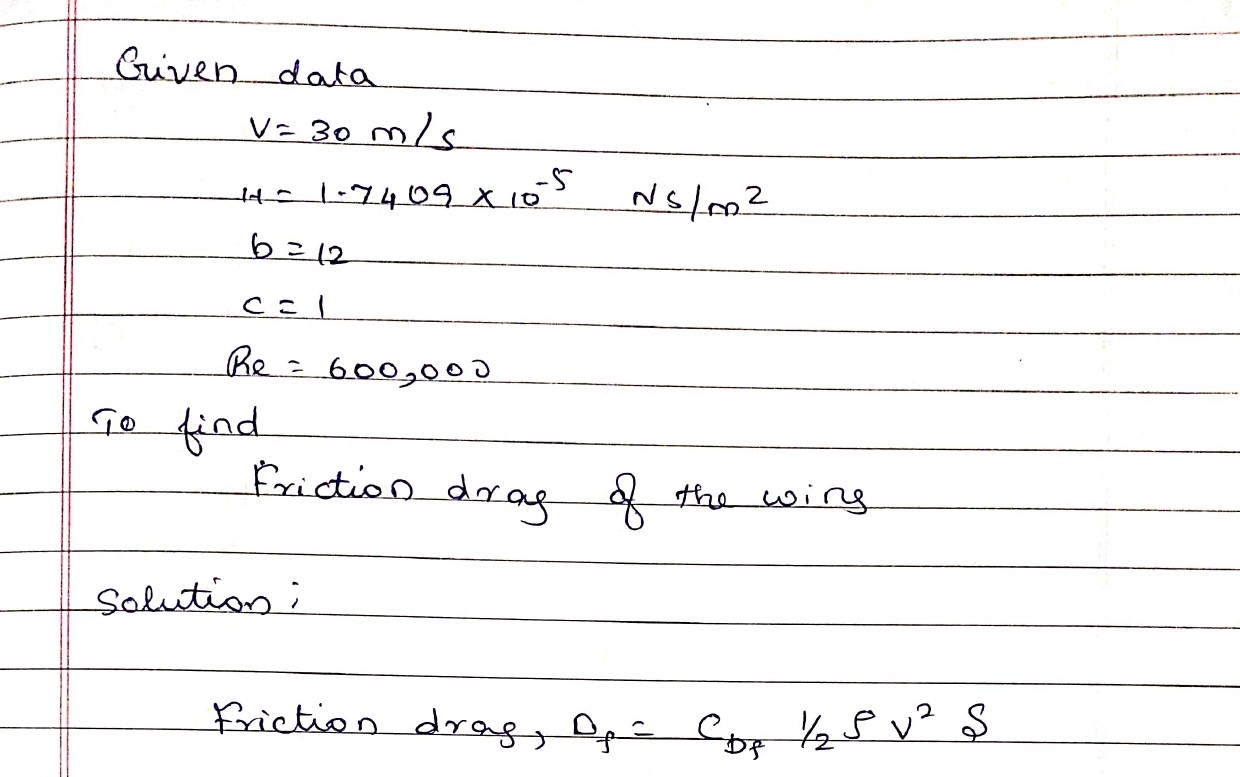 Given data
V = 30 m/s
μ = 1.7409 × 10⁻⁵ Ns/m²
b = 12
c = 1
Re = 600,000
To find
Friction drag of the wing
Solution :
Friction drag, D_f = C_Df ½ ρ V² S